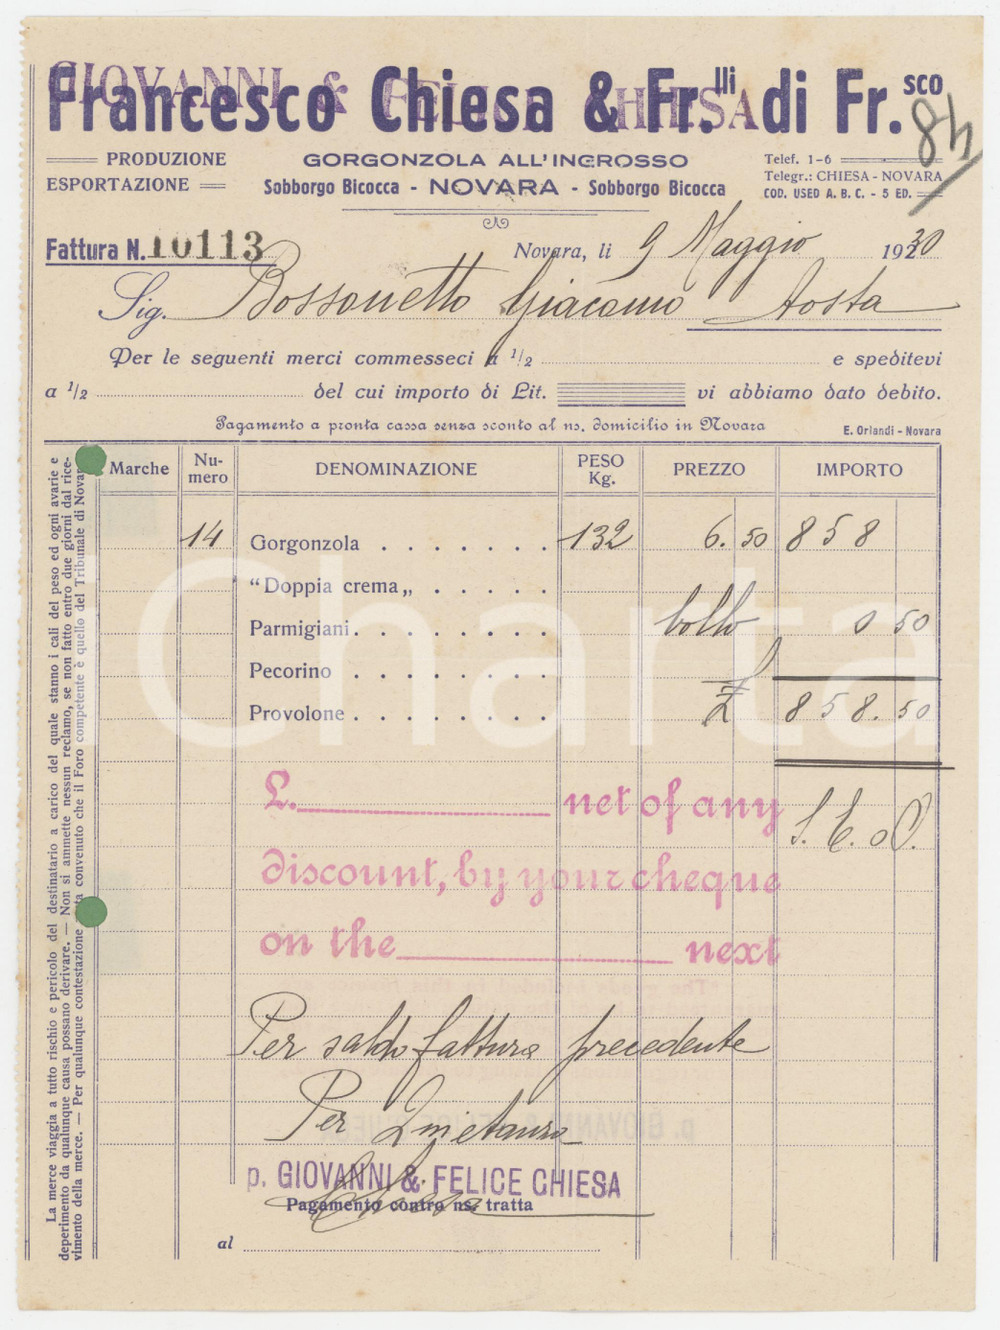 GIOVANNI & FELICE CHIESA
Francesco Chiesa & Fr.lli di Fr.sco
84
PRODUZIONE
ESPORTAZIONE
GORGONZOLA ALL'INGROSSO
Sobborgo Bicocca - NOVARA - Sobborgo Bicocca
Telef. 1-6
Telegr.: CHIESA - NOVARA
COD. USED A. B. C. - 5 ED.
Fattura N. 10113
Novara, li 9 Maggio 1930
Sig. Bossonetto Giacomo Aosta
Per le seguenti merci commesseci a ½ e speditevi
a ½ del cui importo di Lit. vi abbiamo dato debito.
Pagamento a pronta cassa senza sconto al ns. domicilio in Novara
E. Orlandi - Novara
Marche Nu-mero DENOMINAZIONE PESO Kg. PREZZO IMPORTO
14 Gorgonzola . . . . . . . 132 6.50 858
"Doppia crema„ . . . . .
Parmigiani . . . . . . . bollo 0 50
Pecorino . . . . . .
Provolone . . . . . . . £ 858.50
Charta
£. net of any
S. E. O O.
discount, by your cheque
on the next
Per saldo fattura precedente
Per
p. GIOVANNI & FELICE CHIESA
Chiesa
Pagamento contro ns. tratta
al
La merce viaggia a tutto rischio e pericolo del destinatario a carico del quale stanno i cali del peso ed ogni avarie e
deperimento da qualunque causa possano derivare. — Non si ammette nessun reclamo, se non fatto entro due giorni dal rice-
vimento della merce. — Per qualunque contestazione convenuto che il Foro competente è quello del Tribunale di Novara